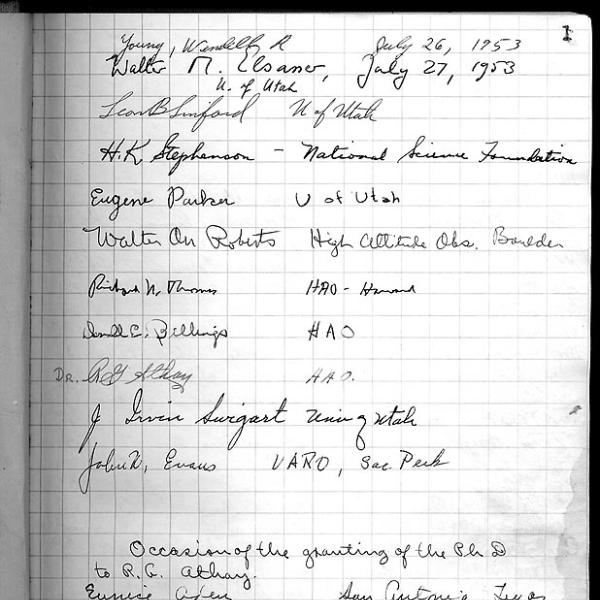 1
Young, Wendell, R July 26, 1953
Walter M. Elsasser, July 27, 1953
U. of Utah
Leon B Linford U of Utah
H.K. Stephenson - National Science Foundation
Eugene Parker U of Utah
Walter Orr Roberts High Altitude Obs. Boulder
Richard N. Thomas HAO - Harvard
Donald E. Billings HAO
Dr. R G Athay HAO.
J Irvin Swigart Univ of Utah
John W. Evans UARO, Sac. Peak
Occasion of the granting of the Ph D
to R.G. Athay.
Eunice San Antonio, Texas